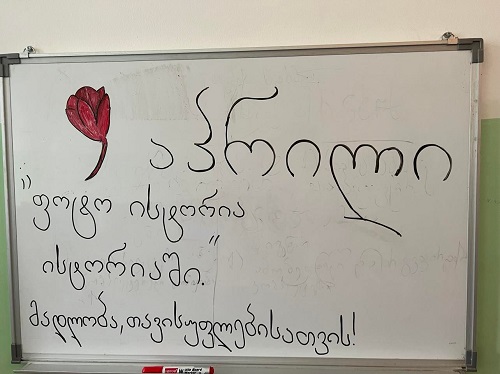 9 აპრილი
"ფოტო ისტორია
ისტორიაში."
მადლობა, თავისუფლებისათვის!